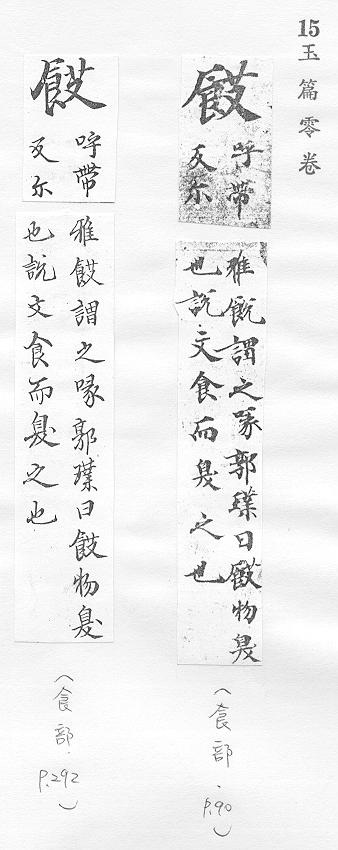 15
玉篇零卷
餀
呼帶
反尔
雅餀謂之喙郭璞曰餀物臭
也說文食而臭之也
(食部.P.90)
餀
呼帶
反尔
雅餀謂之喙郭璞曰餀物臭
也說文食而臭之也
(食部.P.292)